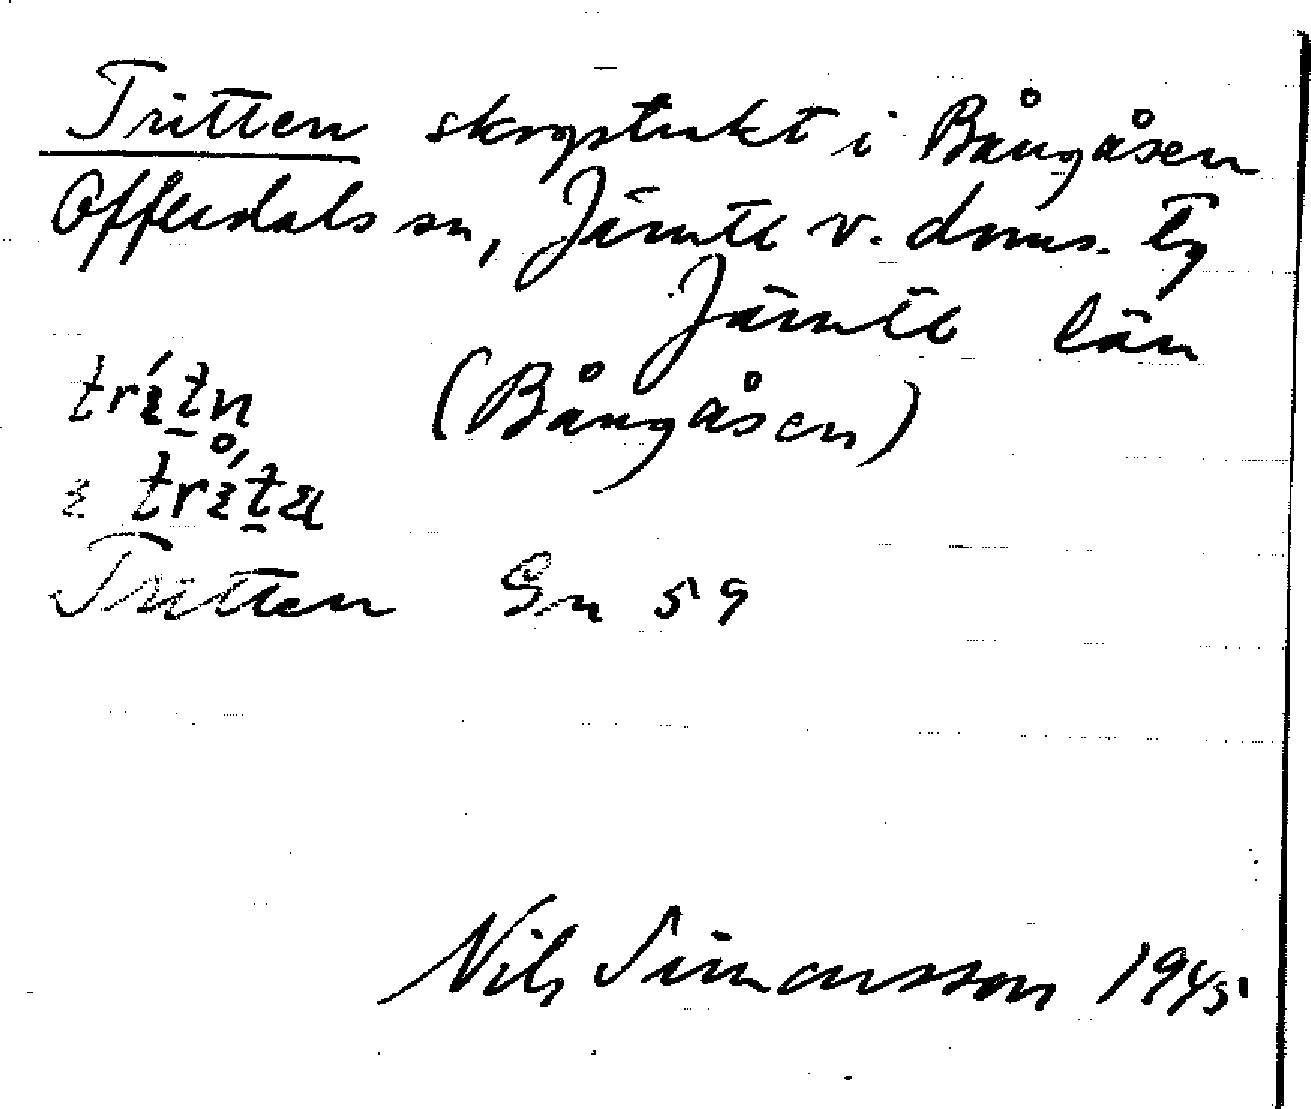 Tritten skogstrakt i Bångåsen
Offerdals sn, Jämtl v. doms. tg
Jämtl län
trítn (Bångåsen)
trítn
Tritten Gn 59
Nils Simonsson 1945